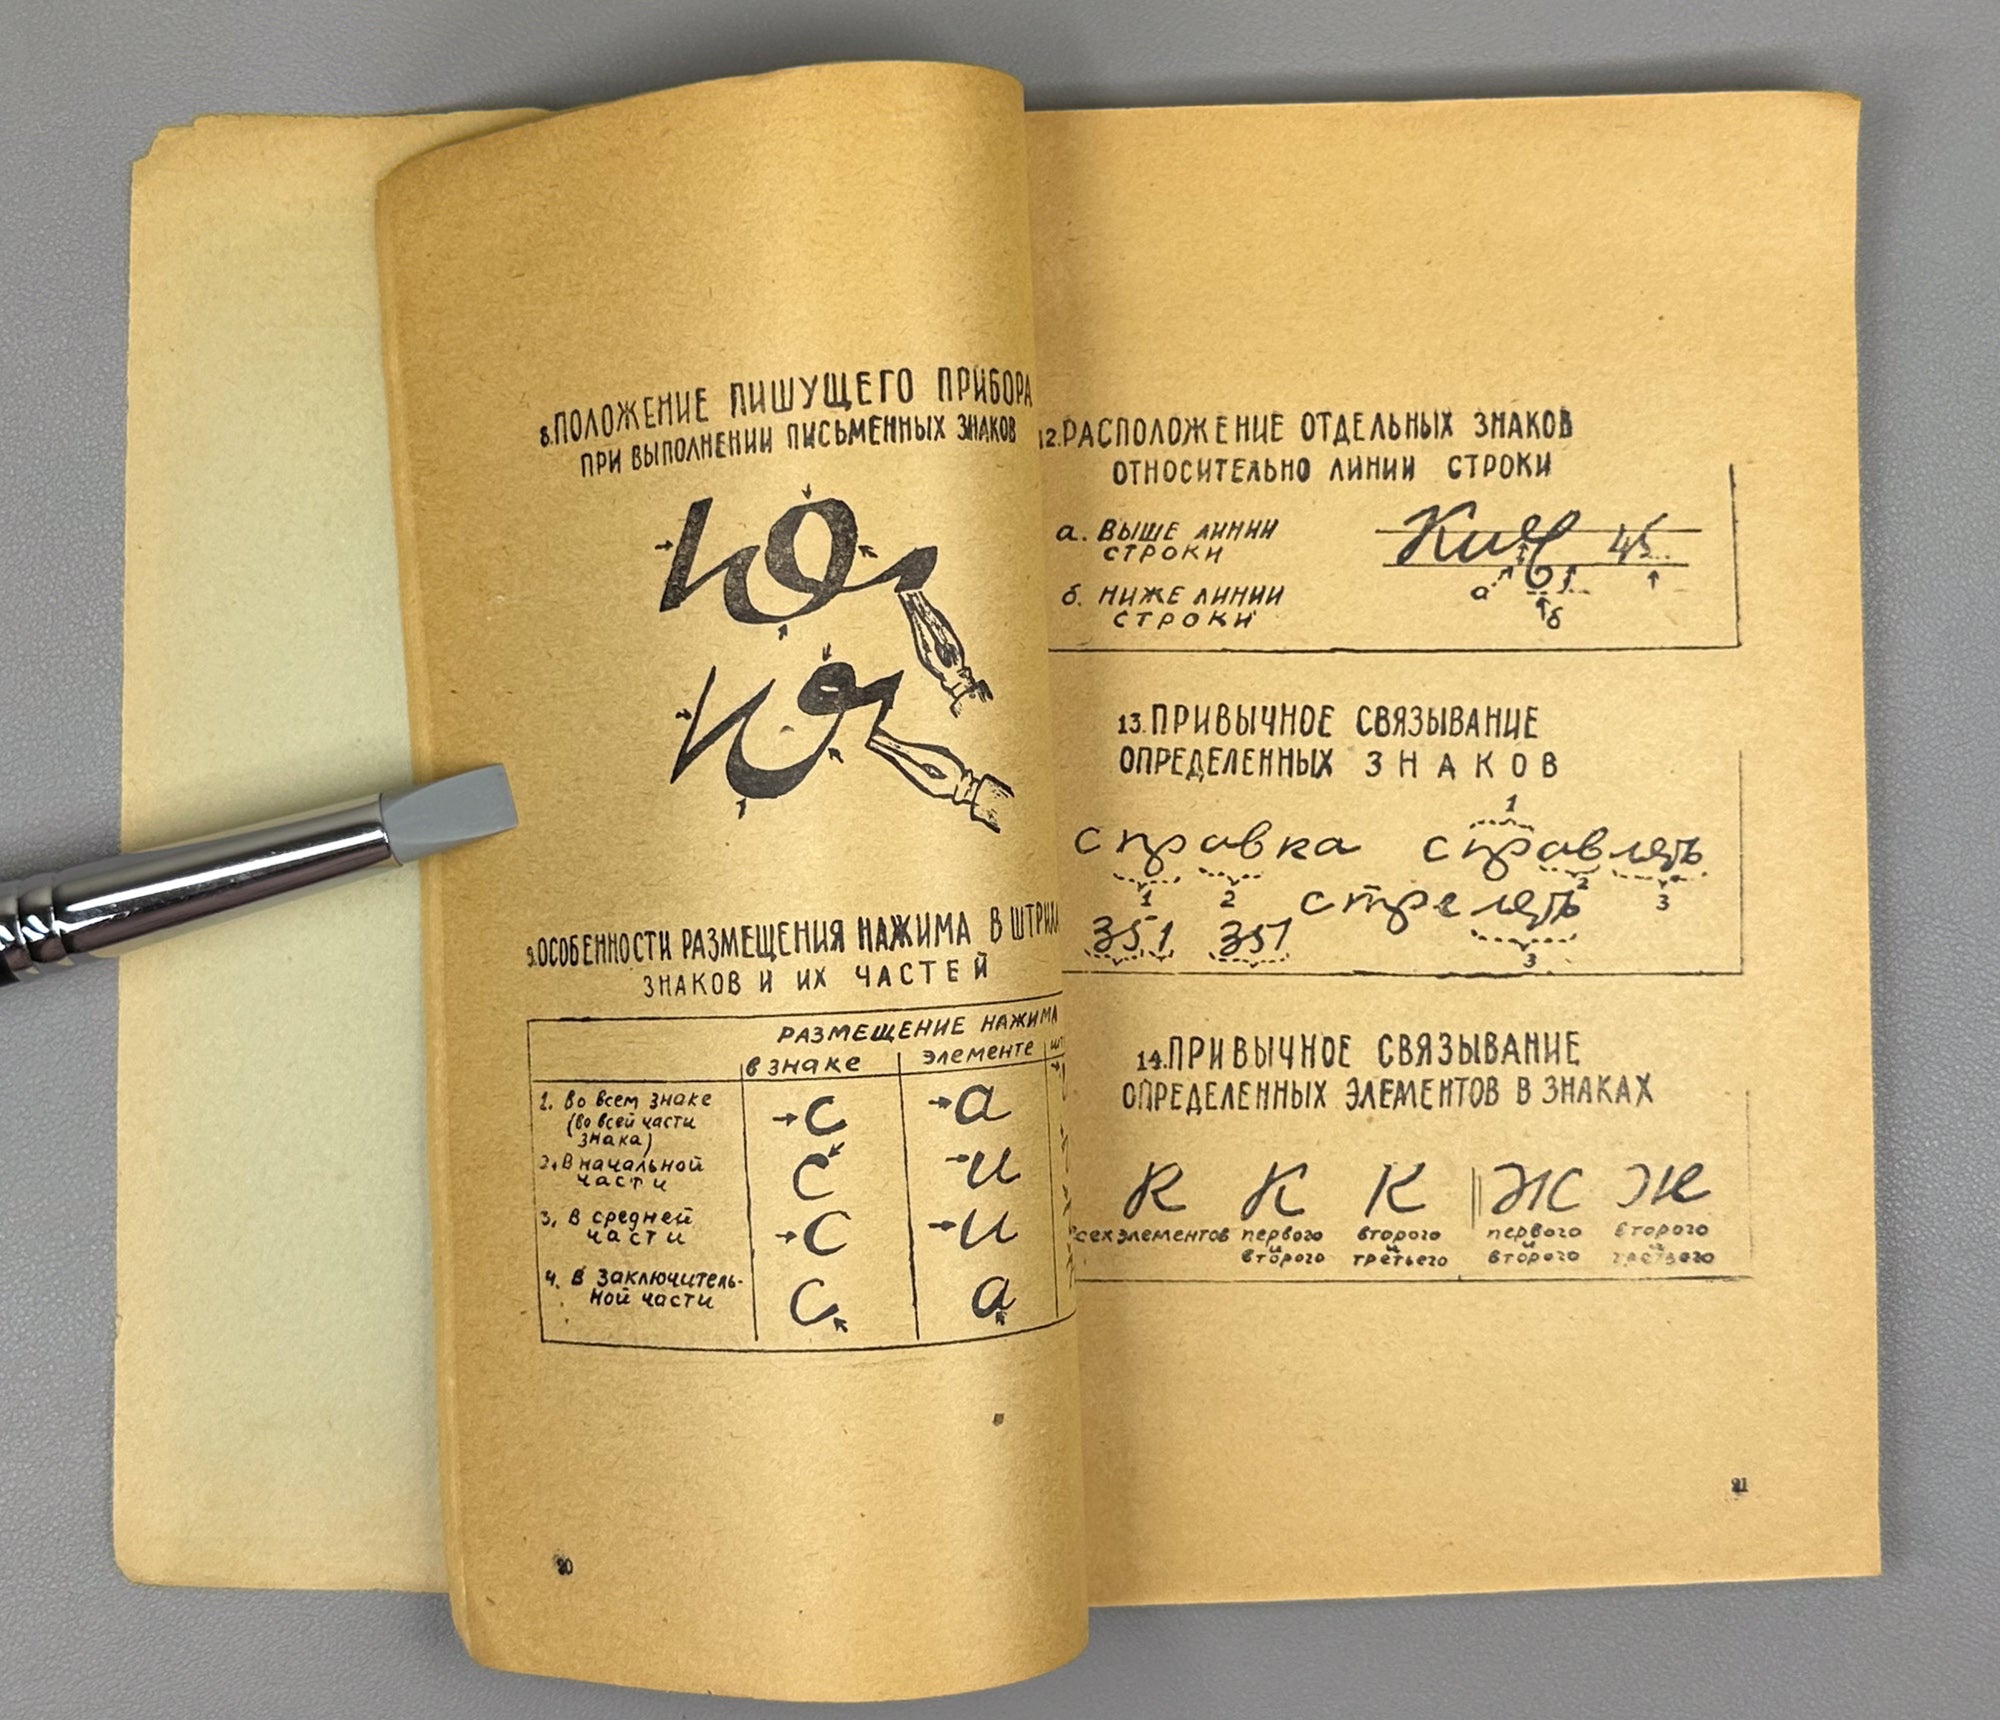 8. ПОЛОЖЕНИЕ ПИШУЩЕГО ПРИБОРА
ПРИ ВЫПОЛНЕНИИ ПИСЬМЕННЫХ ЗНАКОВ
Ю
Ю
9. ОСОБЕННОСТИ РАЗМЕЩЕНИЯ НАЖИМА В
ЗНАКОВ И ИХ ЧАСТЕЙ
РАЗМЕЩЕНИЕ НАЖИМА
в знаке элементе
1. во всем знаке
(во всей части
знака)
с а
2. в начальной
части
с и
3. в средней
части
с и
4. в заключитель-
ной части
с а
20
12. РАСПОЛОЖЕНИЕ ОТДЕЛЬНЫХ ЗНАКОВ
ОТНОСИТЕЛЬНО ЛИНИИ СТРОКИ
а. ВЫШЕ ЛИНИИ
СТРОКИ
б. НИЖЕ ЛИНИИ
СТРОКИ
45
а
б
13. ПРИВЫЧНОЕ СВЯЗЫВАНИЕ
ОПРЕДЕЛЕННЫХ ЗНАКОВ
1
справка справлять
1 2 2 3
стрелять
351 351
3
14. ПРИВЫЧНОЕ СВЯЗЫВАНИЕ
ОПРЕДЕЛЕННЫХ ЭЛЕМЕНТОВ В ЗНАКАХ
К К К Ж Ж
элементов первого второго первого второго
и и и и
второго третьего второго третьего
21